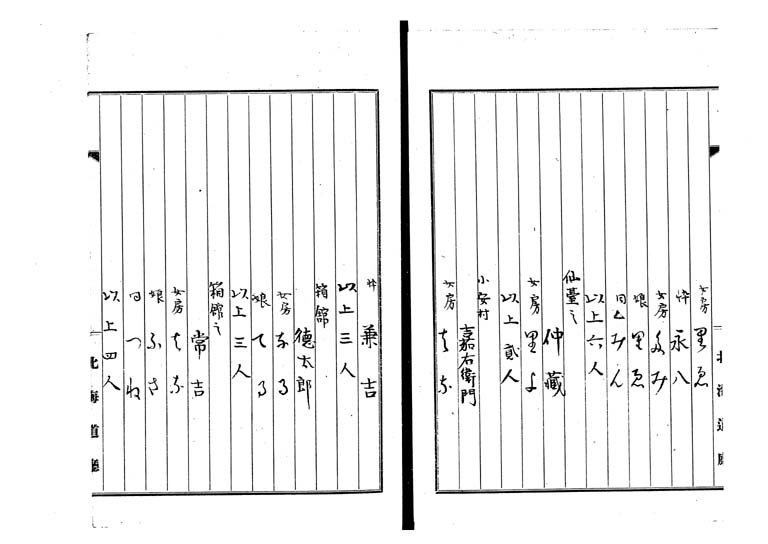 女房 里ゑ
忰 永八
女房 多み
娘 里ゑ
同 みん
以上六人
仙臺之
仲藏
女房 里よ
以上貳人
小安村
嘉右衛門
女房 はな
忰 兼吉
以上三人
箱館
德太郎
女房 なる
娘 てる
以上三人
箱館之
常吉
女房 はな
娘 ふさ
同 つね
以上四人
北海道廳